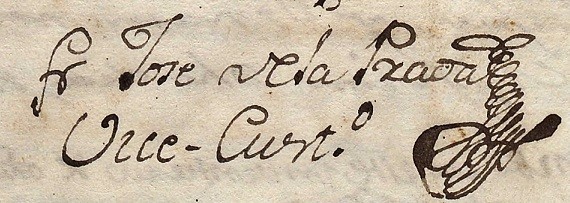 fr Jose dela Prada
Vice-Cust.º